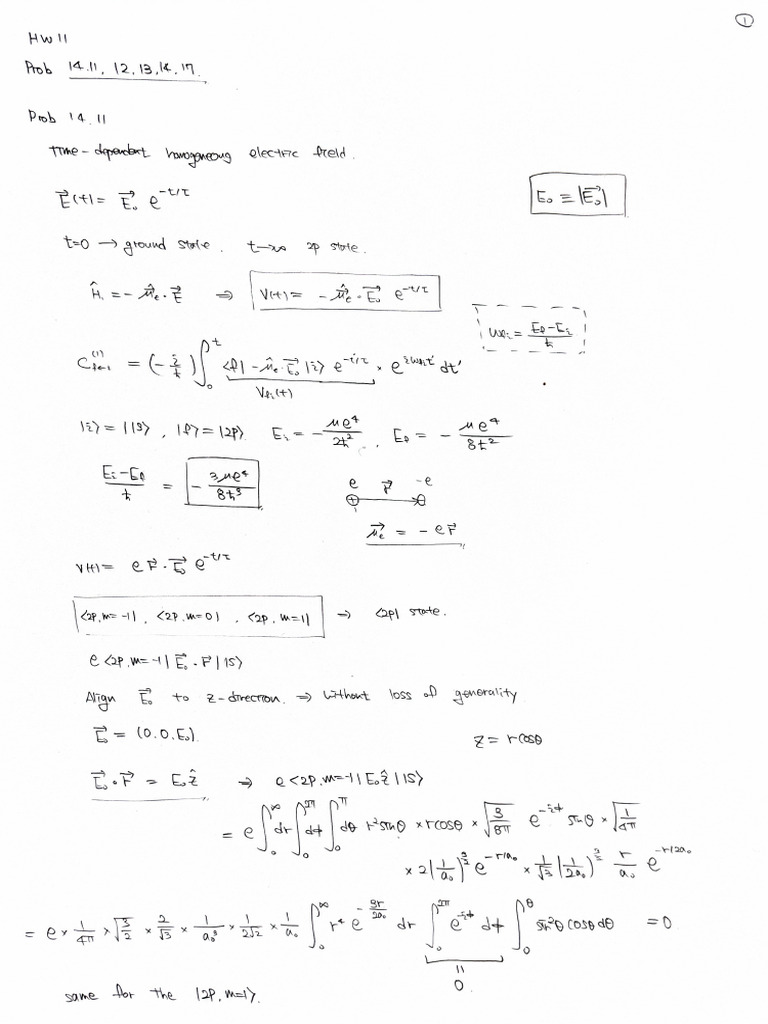 ①
HW 11
Prob 14.11, 12, 13, 14, 17.
Prob 14.11
Time-dependent homogeneous electric field.
E⃗(t) = E⃗₀ e^{-t/τ}
E₀ ≡ |E⃗₀|
t=0 → ground state. t→∞ 2p state.
Ĥ₁ = -μ̂⃗ₑ·E⃗ ⇒ V(t) = -μ̂⃗ₑ·E⃗₀ e^{-t/τ}
ω_{fi} = (E_f - E_i)/ħ
C^{(1)}_{f←i} = (-i/ħ) ∫₀^t <f| -μ̂ₑ·E⃗₀ |i> e^{-t'/τ} × e^{iω_{fi}t'} dt'
V_{fi}(t)
|i> = |1S>, |f> = |2p>. E_i = -μe⁴/2ħ², E_f = -μe⁴/8ħ²
(E_i - E_f)/ħ = -3μe⁴/8ħ³
e r⃗ -e
⊕ → ⊖
μ⃗ₑ = -e r⃗
V(t) = e r⃗·E⃗₀ e^{-t/τ}
<2p, m=-1|, <2p, m=0|, <2p, m=1| → <2p| state.
e <2p, m=-1| E⃗₀·r⃗ |1S>
Align E⃗₀ to z-direction. ⇒ without loss of generality
E⃗₀ = (0, 0, E₀).
z = r cosθ
E⃗₀·r⃗ = E₀ẑ ⇒ e <2p, m=-1| E₀ẑ |1S>
= e ∫₀^∞ dr ∫₀^{2π} dϕ ∫₀^π dθ r² sinθ × r cosθ × √(3/8π) e^{-iϕ} sinθ × √(1/4π)
× 2(1/a₀)^{3/2} e^{-r/a₀} × 1/√3 (1/2a₀)^{3/2} r/a₀ e^{-r/2a₀}
= e × 1/4π × √(3/2) × 2/√3 × 1/a₀³ × 1/2√2 × 1/a₀ ∫₀^∞ r⁴ e^{-3r/2a₀} dr ∫₀^{2π} e^{-iϕ} dϕ ∫₀^θ sin²θ cosθ dθ = 0
||
0
same for the |2p, m=1>.